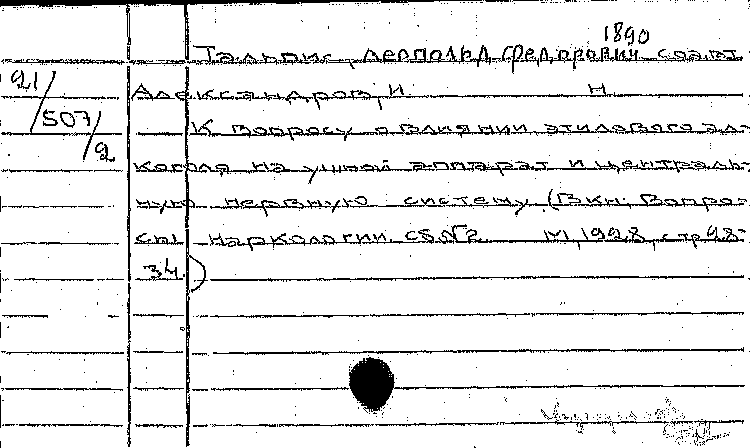 1890
Тальпис, Леопольд Федорович соавт.
21/507/2
Александров, И. Н.
К вопросу о влиянии этилового ал-
коголя на ушной аппарат и централь-
ную нервную систему. (В кн. Вопро-
сы наркологии. сб. №2. М, 1928, стр 28-
34.)